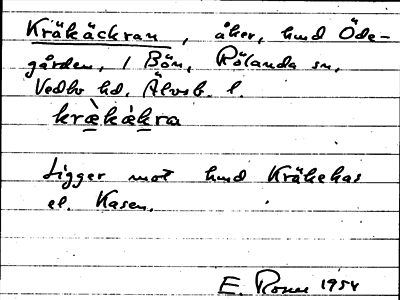 Kräkäckran, åker, hmd Öde-
gården, 1 Bön, Rölanda sn,
Vedbo hd. Älvsb. l.
kræ̀kàkra
Ligger mot hmd Kräkekas
el. Kasen.
E. 1954